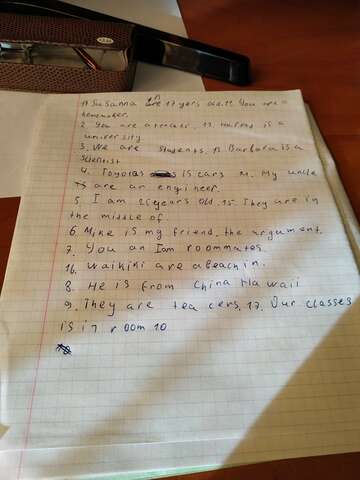 1) Susanna are 17 yers old. 11. You are a
homemaker.
2 You are a teacher, 12. Harvard is a
university
3. We are students, 13 Barbara is a
scientist
4. Toyotas is cars 14. My uncle
are an engineer.
5. I am 25 years old. 15 They are in
the middle of
6. Mike is my friend, the argument.
7. You an I am roommates.
16. Waikiki are a beach in.
8. He is from China Hawaii
9. They are teacers, 17. Our classes
is in room 10